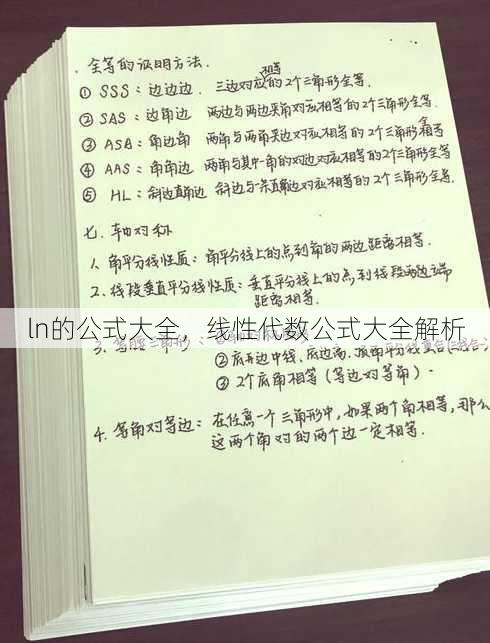 全等的证明方法.
① SSS：边边边. 三边对应相等的2个三角形全等.
② SAS：边角边 两边与两边夹角对应相等的2个三角形全等.
③ ASA：角边角 两角与两角夹边对应相等的2个三角形全等
④ AAS：角角边 两角与其中一角的对边对应相等的2个三角形全等
⑤ HL：斜边直角边 斜边与一条直角边对应相等的2个三角形全等.
七. 轴对称
1. 角平分线性质：角平分线上的点到角的两边距离相等.
2. 线段垂直平分线性质：垂直平分线上的点到线段两边端
距离相等.
ln的公式大全，线性代数公式大全解析
3. 等腰三角形：
② 底再边中线, 底边高, 顶角平分线重合(三线合一)
③ 2个底角相等（等边对等角）.
4. 等角对等边：在任意一个三角形中,如果两个角相等,那么
这两个角对的两个边一定相等.